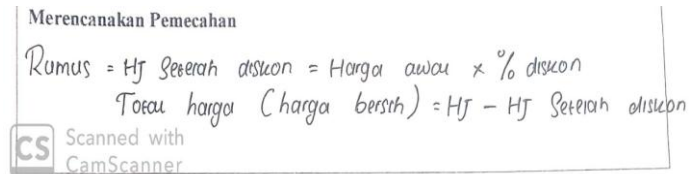 Merencanakan Pemecahan
Rumus = HJ Seterah diskon = Harga awal x % diskon
Total harga (harga bersih) = HJ - HJ Setelah diskon
CS Scanned with
CamScanner